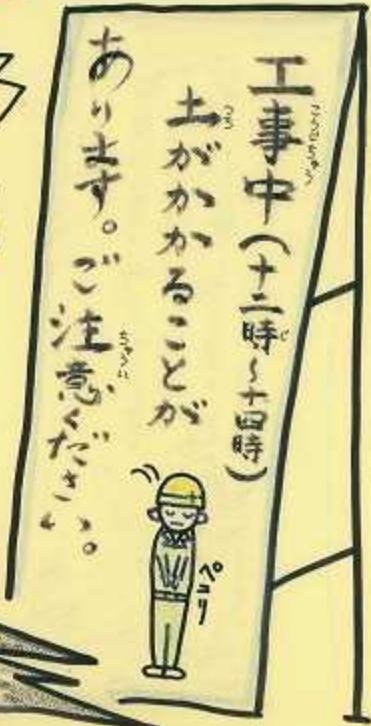 工事中(十二時～十四時)
土がかかることが
あります。ご注意ください。
ペコリ